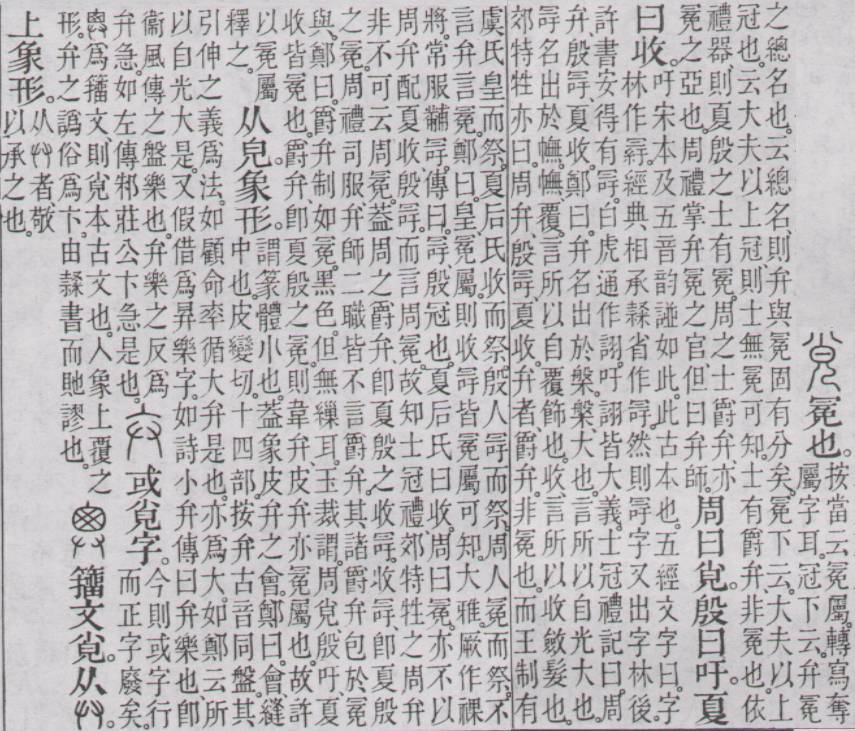 覍 冕也。
按當云冕屬。轉寫奪
屬字耳。冠下云。弁冕
之緫名也。云緫名、則弁與冕固有分矣。冕下云。大夫以上
冠也。云大夫以上冠、則士無冕可知。士有爵弁、非冕也。依
禮器、則夏殷之士有冕。周之士爵弁、亦
冕之亞也。周禮掌弁冕之官、但曰弁師。
周曰覍。殷曰吁。夏
曰收。
吁宋本及五音韵譜如此。此古本也。五經文字曰。字
林作冔。經典相承隸省作冔。然則冔字又出字林後。
許書安得有冔。白虎通作詡。吁詡皆大義。士冠禮記曰。周
弁、殷冔、夏收。鄭曰。弁名出於槃。槃、大也。言所以自光大也。
冔名出於幠。幠、覆。言所以自覆飾也。收、言所以收斂髮也。
郊特牲亦曰。周弁、殷冔、夏收。弁者、爵弁。非冕也。而王制有
虞氏皇而祭。夏后氏收而祭。殷人冔而祭。周人冕而祭。不
言弁言冕。鄭曰。皇、冕屬。則收冔皆冕屬可知。大雅。厥作祼
將。常服黼冔。傳曰。冔、殷冠也。夏后氏曰收。周曰冕。亦不以
周弁配夏收殷冔。而言周冕。故知士冠禮、郊特牲之周弁
非不可云周冕。葢周之爵弁卽夏殷之收冔。收冔卽夏殷
之冕。周禮司服、弁師二職皆不言爵弁。其諸爵弁包於冕
與。鄭曰。爵弁制如冕、黑色。但無繅耳。玉裁謂。周覍、殷吁、夏
收皆冕也。爵弁、卽夏殷之冕、則韋弁、皮弁亦冕屬也。故許
以冕屬
釋之。
从皃。象形。
謂篆體小也。葢象皮弁之會。鄭曰。會、縫
中也。皮變切。十四部。按弁古音同盤。其
引伸之義爲法。如顧命率循大弁是也。亦爲大。如鄭云所
以自光大是。又假借爲昪樂字。如詩小弁傳曰弁樂也。卽
衞風傳之盤樂也。弁樂之反爲
弁急。如左傳邾莊公卞急是也。
弁 或覍字。
今則或字行
而正字廢矣。
爲籒文、則覍本古文也。人象上覆之
形。弁之譌俗爲卞。由隸書而貤謬也。
籒文覍。从廾。
上象形。
从廾者敬
以承之也。